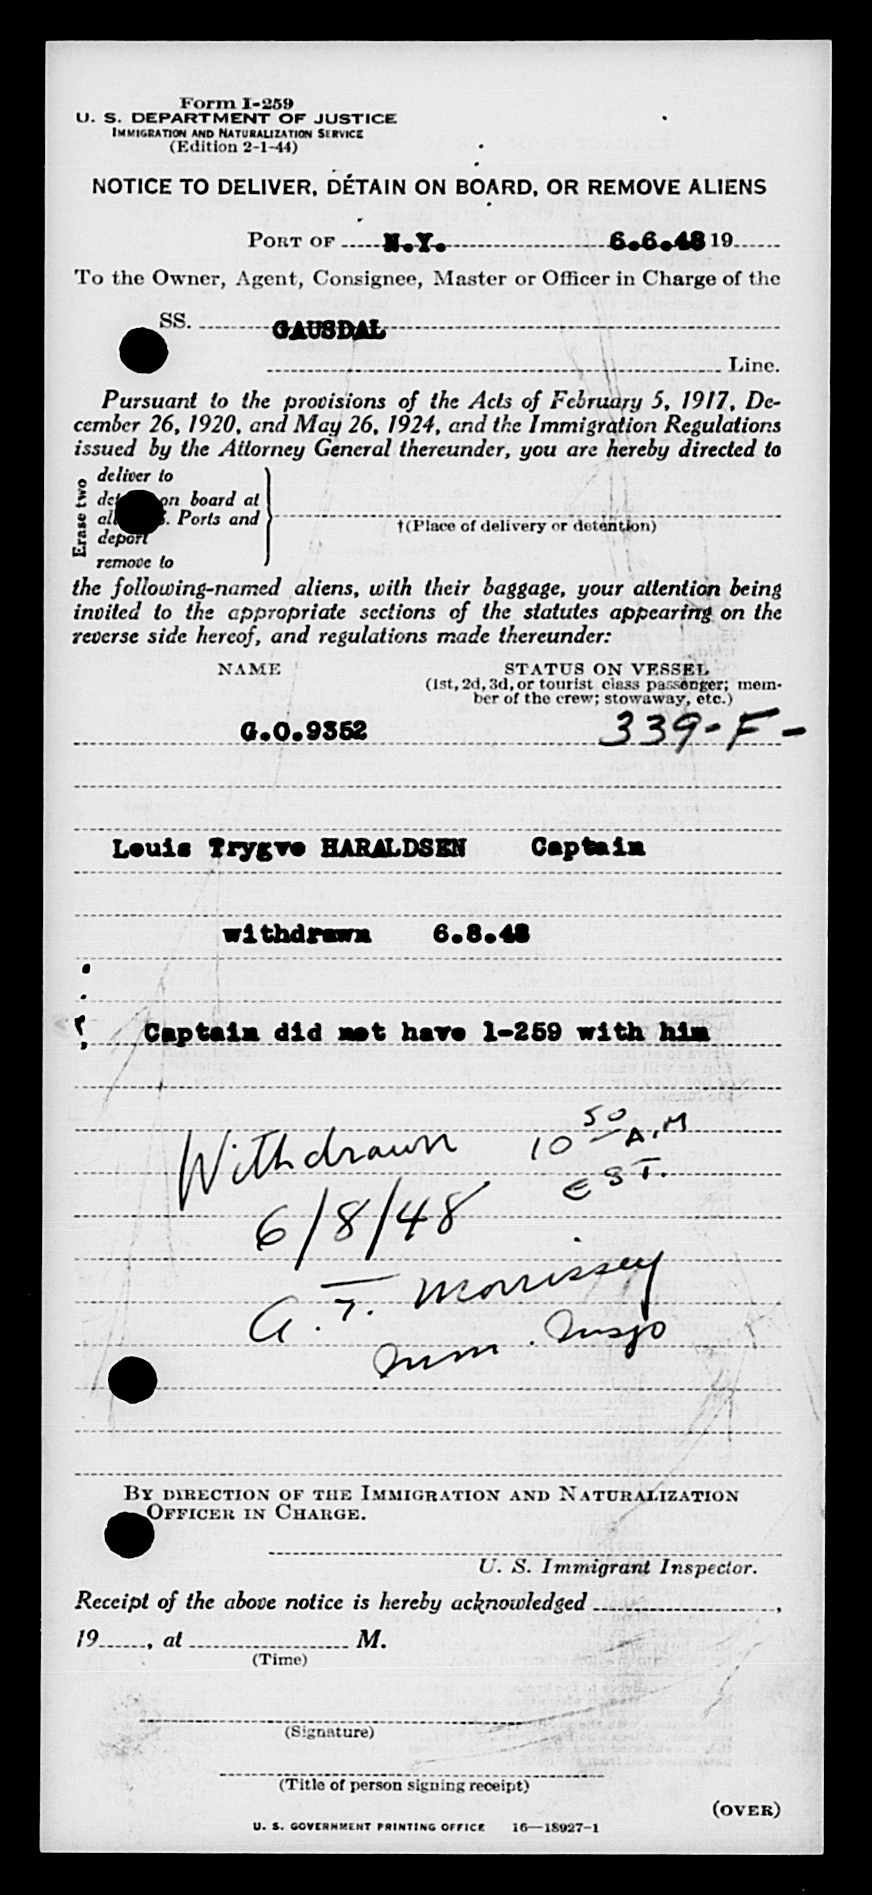 Form I-259
U. S. DEPARTMENT OF JUSTICE
IMMIGRATION AND NATURALIZATION SERVICE
(Edition 2-1-44)
NOTICE TO DELIVER, DETAIN ON BOARD, OR REMOVE ALIENS
PORT OF N.Y. 6.6.48 19
To the Owner, Agent, Consignee, Master or Officer in Charge of the
SS. GAUSDAL
Line.
Pursuant to the provisions of the Acts of February 5, 1917, De-
cember 26, 1920, and May 26, 1924, and the Immigration Regulations
issued by the Attorney General thereunder, you are hereby directed to
Erase two
deliver to
on board at
Ports and
deport
remove to
†(Place of delivery or detention)
the following-named aliens, with their baggage, your attention being
invited to the appropriate sections of the statutes appearing on the
reverse side hereof, and regulations made thereunder:
NAME STATUS ON VESSEL
(1st, 2d, 3d, or tourist class passenger; mem-
ber of the crew; stowaway, etc.)
G.O.9352 339-F-
Louis Trygve HARALDSEN Captain
withdrawn 6.8.48
Captain did not have 1-259 with him
Withdrawn 10 50 A.M
EST.
6/8/48
A. T. Morrissey
Imm. Insp
BY DIRECTION OF THE IMMIGRATION AND NATURALIZATION
OFFICER IN CHARGE.
U. S. Immigrant Inspector.
Receipt of the above notice is hereby acknowledged ,
19 , at M.
(Time)
(Signature)
(Title of person signing receipt)
(OVER)
U. S. GOVERNMENT PRINTING OFFICE 16—18927-1